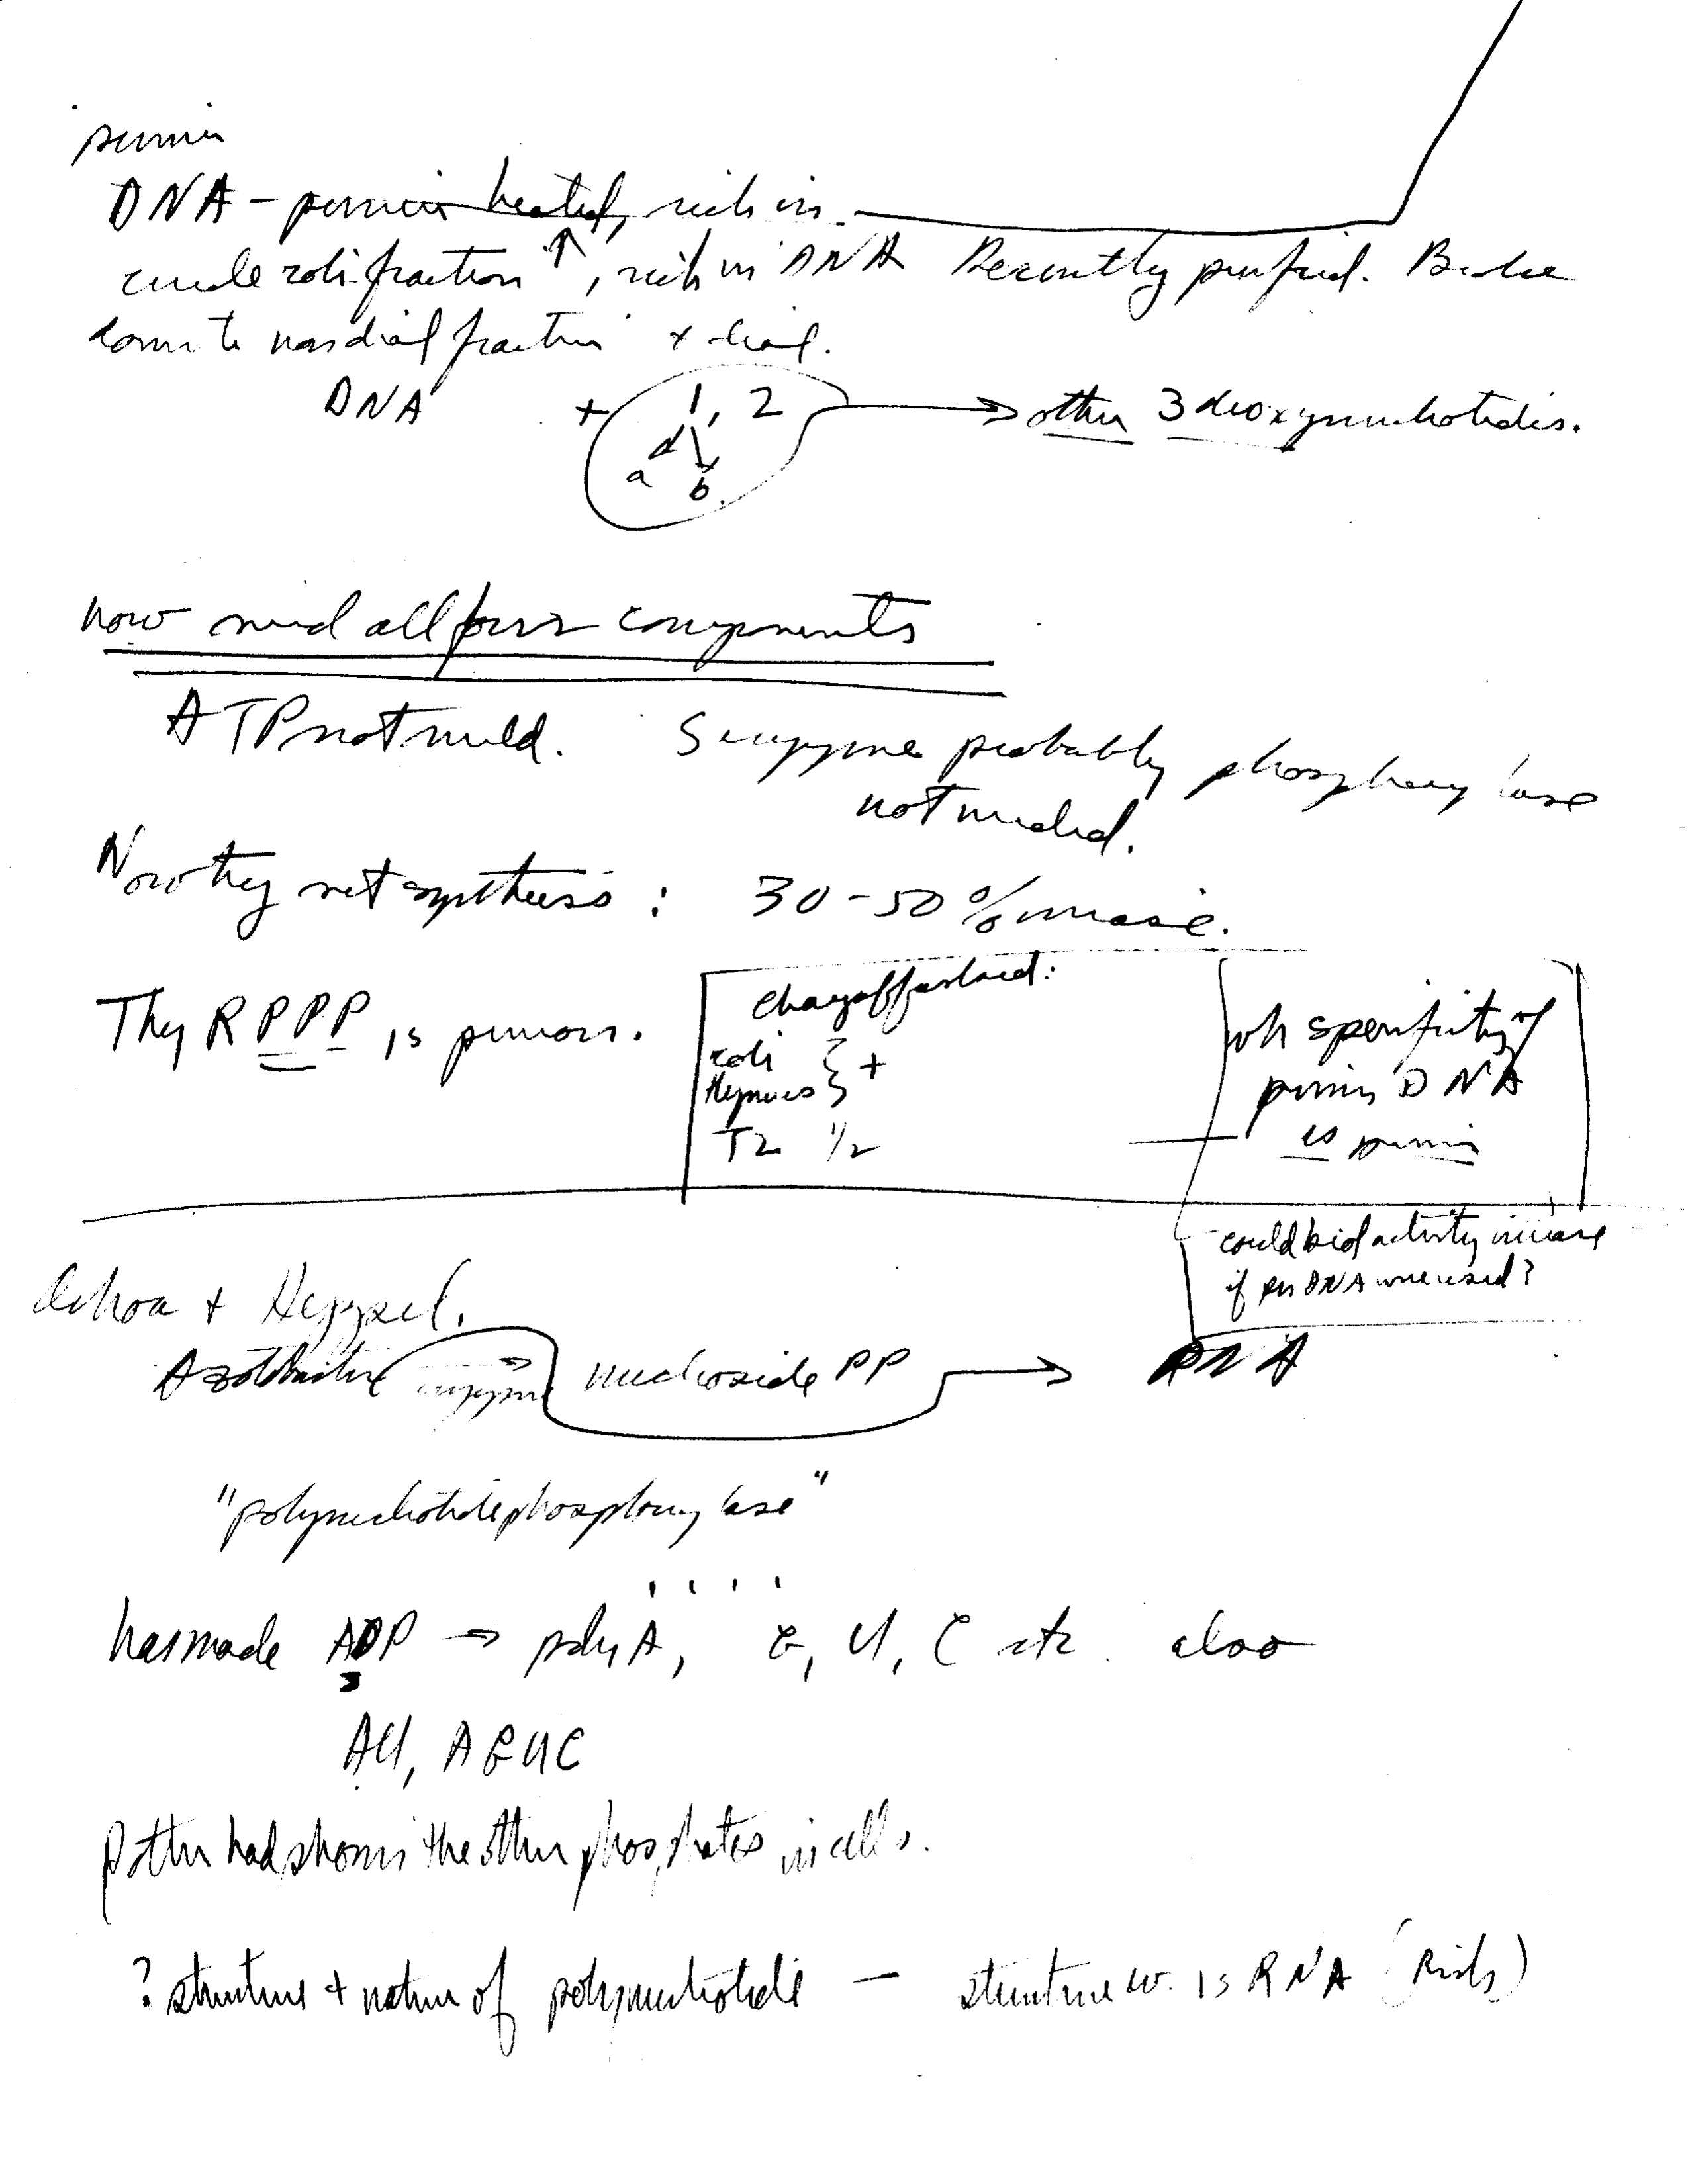 primer
DNA - primer heated, rich in
crude coli fraction ↑, rich in DNA Recently purified. Broke
down to nondial fraction + dial.
DNA + 1, 2 → other 3 deoxynucleotides.
a b
now need all four components
ATP not needed. S enzyme probably phosphorylase
not needed.
Now they net synthesis: 30-50% increase.
Thy R PPP is primer.
Chargaff asked:
coli } +
thymus
T2 1/2
wh specificity of
primer DNA
is primer
could biol activity increase
if DNA were used?
Ochoa + Heppel.
Azotobacter enzyme nucleoside PP → RNA
"polynucleotide phosphorylase"
has made ADP → poly A, G, U, C etc. also
AU, AGUC
Potter had shown the other phosphates in cells.
? structure + nature of polynucleotide — structure w. is RNA (Rich)